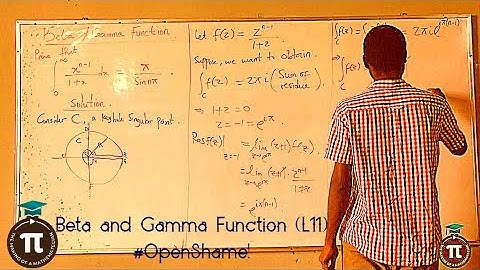 Beta / Gamma function
Prove that
∫₀^∞ x^{n-1}/(1+x) dx = π/Sin nπ.
Solution
Consider C, a keyhole Singular point.
C
Let f(z) = z^{n-1}/(1+z)
Suppose, we want to obtain
∫_C f(z) = 2πi (Sum of residue)
⇒ 1+z=0
z = -1 = e^{iπ}
Resf(z)|_{z=-1} = lim_{z→e^{iπ}} (z+1)f(z).
= lim_{z→e^{iπ}} (z+1)· z^{n-1}/(1+z)
= e^{iπ(n-1)}
∫_C f(z) = 2πi e^{iπ(n-1)}
⇒ ∫_C f(z)
Beta and Gamma Function (L11)
#OpenShame!
π
π